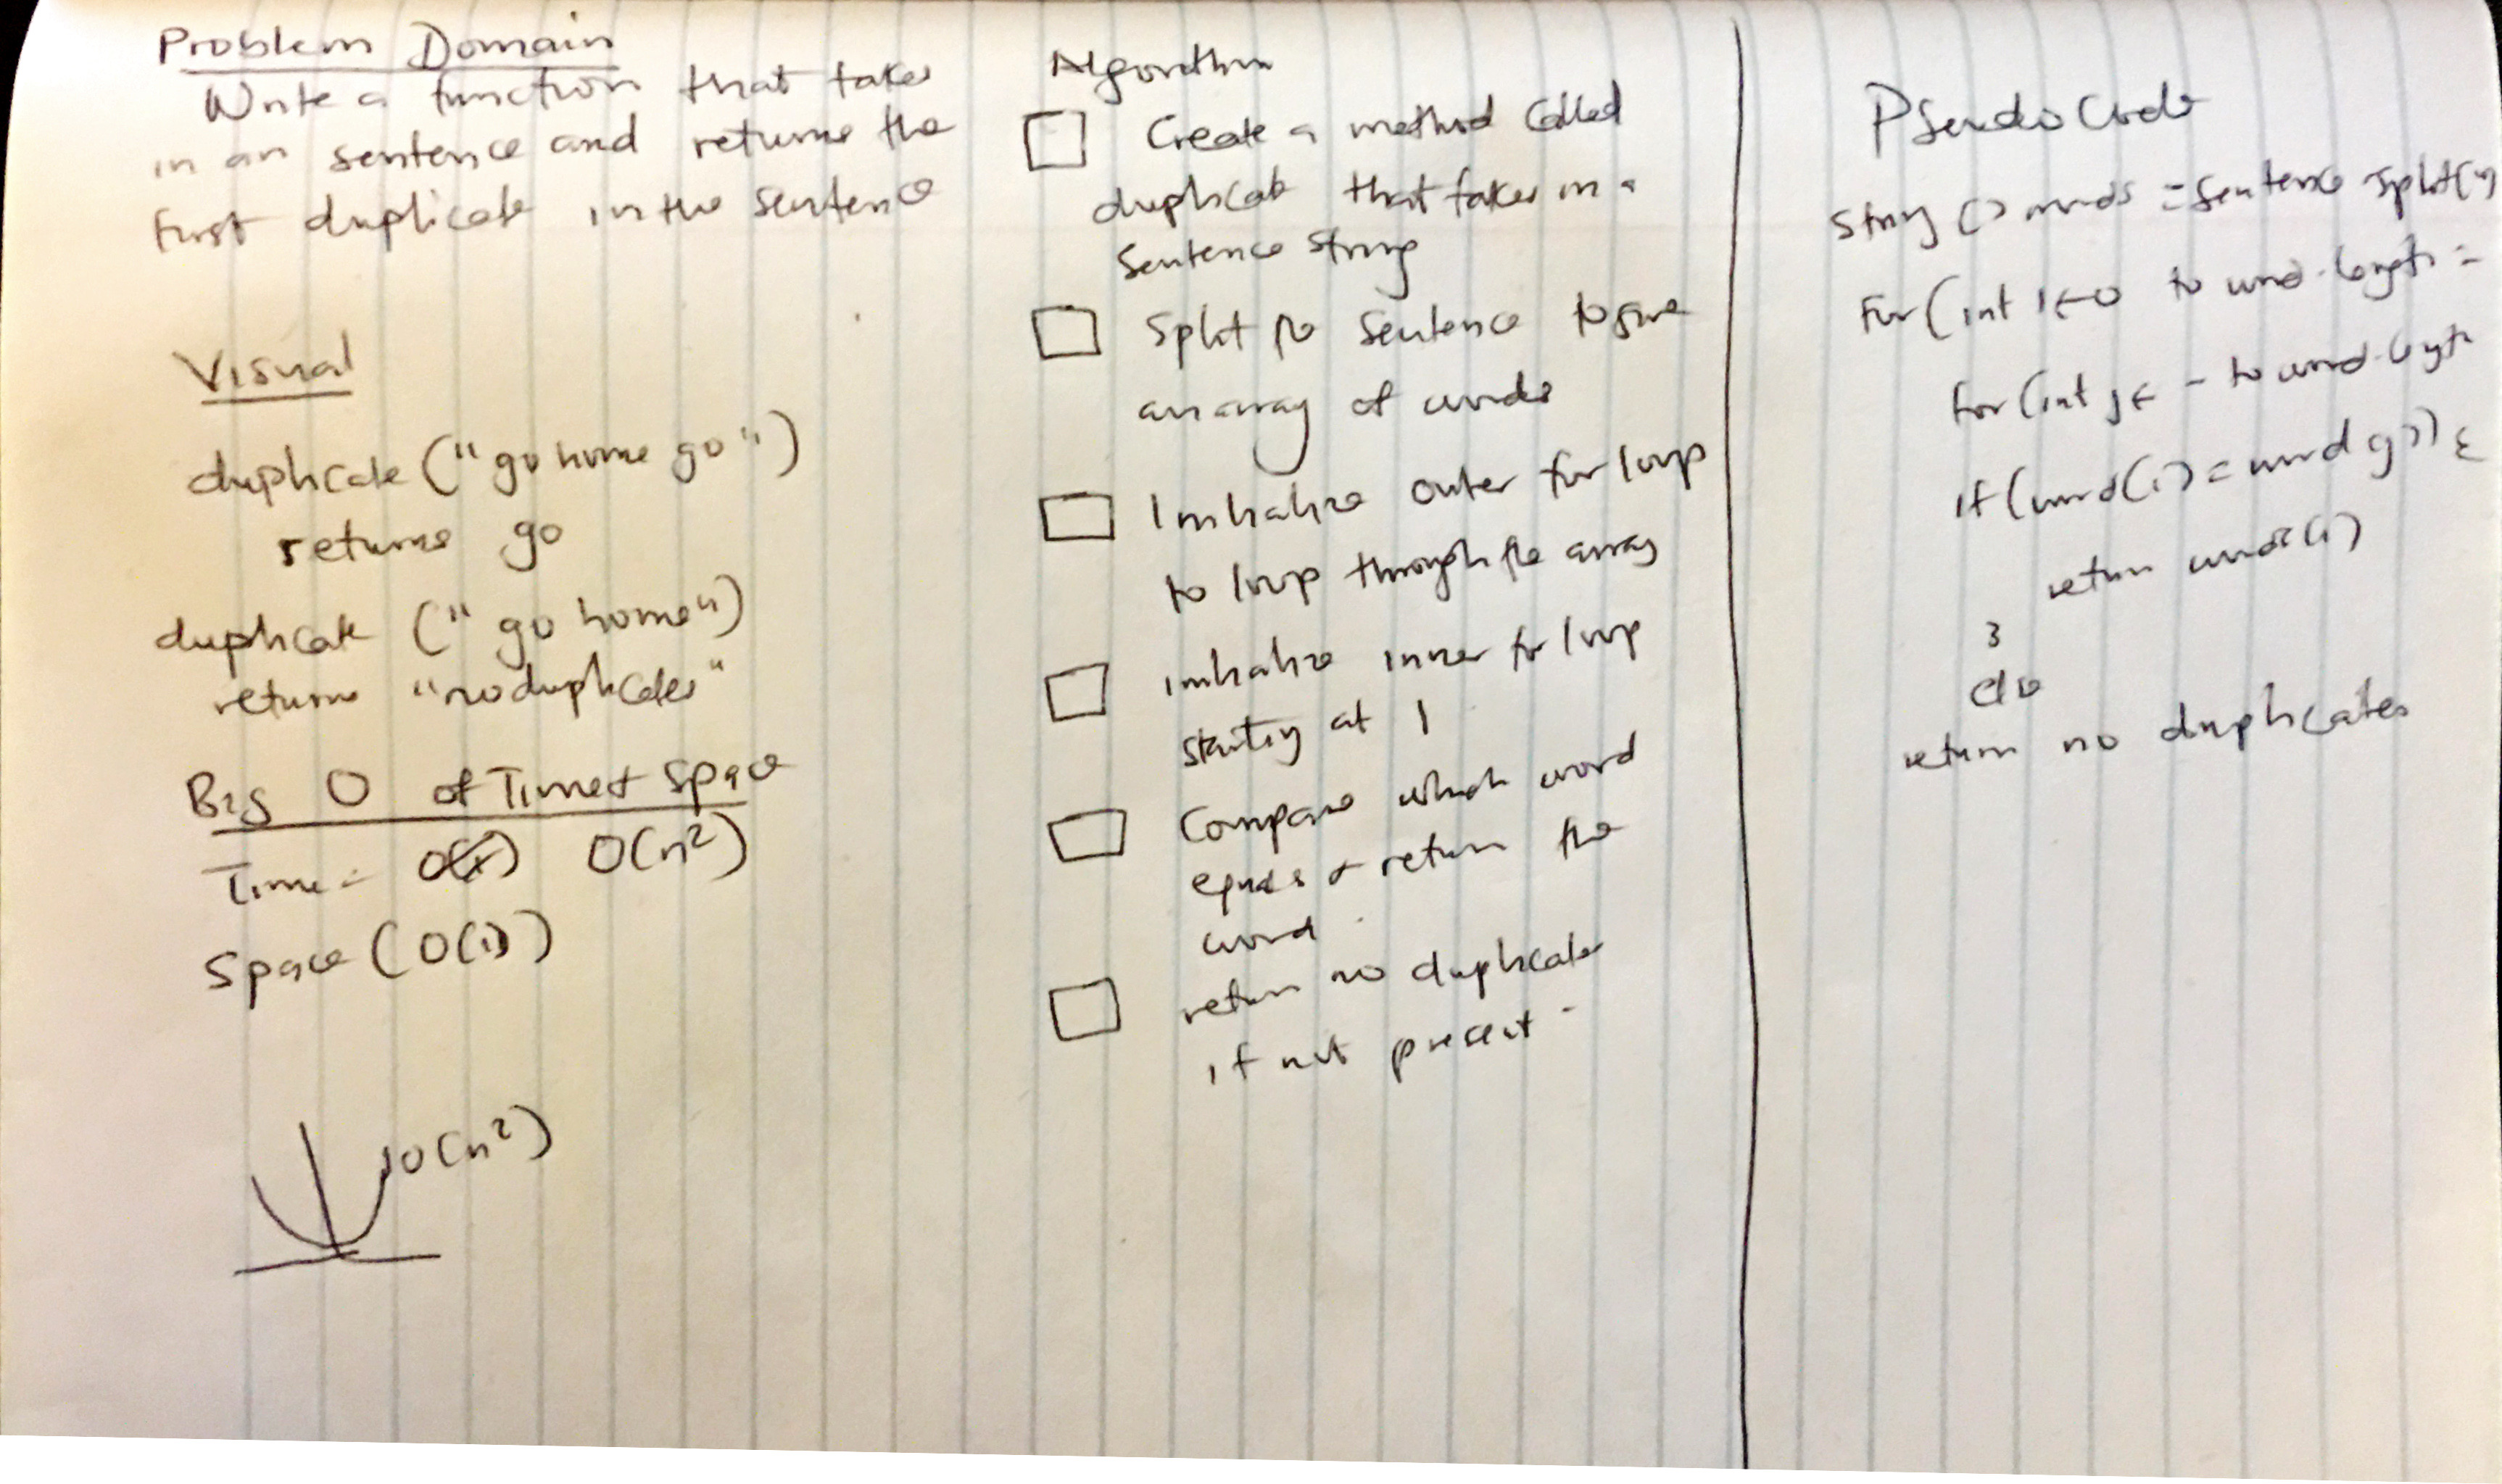 Problem Domain
Write a function that takes
in an sentence and returns the
first duplicate in the sentence
Visual
duplicate ("go home go")
returns go
duplicate ("go home")
returns "no duplicates"
Big O of Time + Space
Time = O(n²)
Space (O(1))
O(n²)
Algorithm
Create a method called
duplicate that takes in a
sentence string
Split the sentence to give
an array of words
Initialize outer for loop
to loop through the array
initialize inner for loop
starting at 1
Compare which word
equals + return the
word
return no duplicate
if not present
Pseudo Code
String [] words = sentence.split(
for (int i ← 0 to word.length -
for (int j ← to word.length
if (word(i) = word j)) {
return words(i)
}
else
return no duplicates